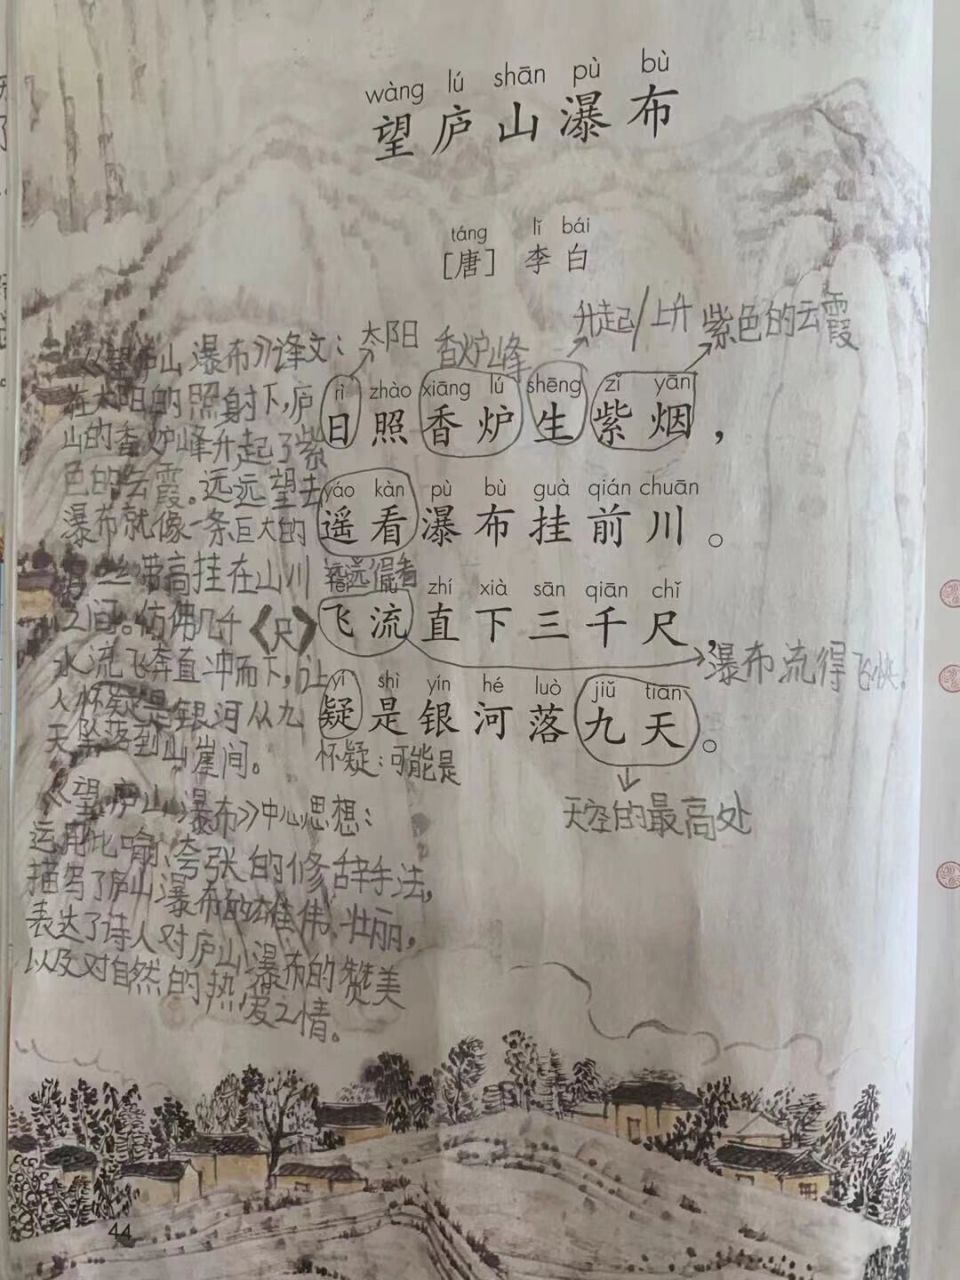 wàng lú shān pù bù
望庐山瀑布
táng lǐ bái
[唐] 李白
升起/上升
紫色的云霞
太阳
香炉峰
rì zhào xiāng lú shēng zǐ yān
日照香炉生紫烟，
yáo kàn pù bù guà qián chuān
遥看瀑布挂前川。
远远看着
zhí xià sān qiān chǐ
飞流直下三千尺，
瀑布流得飞快。
yí shì yín hé luò jiǔ tiān
疑是银河落九天。
怀疑：可能是
天空的最高处
《望庐山瀑布》译文：
在太阳的照射下，庐
山的香炉峰升起了紫
色的云霞。远远望去
瀑布就像一条巨大的
丝带高挂在山川
之间。仿佛几千《尺》
水流飞奔直冲而下，让
人怀疑是银河从九
天坠落到山崖间。
《望庐山瀑布》中心思想：
运用比喻、夸张的修辞手法，
描写了庐山瀑布的雄伟、壮丽，
表达了诗人对庐山瀑布的赞美
以及对自然的热爱之情。
44